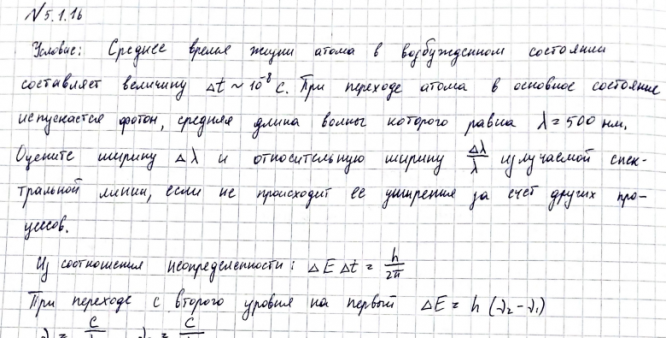 №5.1.16
Условие: Среднее время жизни атома в возбужденном состоянии
составляет величину Δt ~ 10⁻⁸ с. При переходе атома в основное состояние
испускается фотон, средняя длина волны которого равна λ = 500 нм.
Оцените ширину Δλ и относительную ширину Δλ/λ излучаемой спек-
тральной линии, если не происходит ее уширения за счет других про-
цессов.
Из соотношения неопределенности: ΔE Δt = h/2π
При переходе с второго уровня на первый ΔE = h (ν₂ - ν₁)